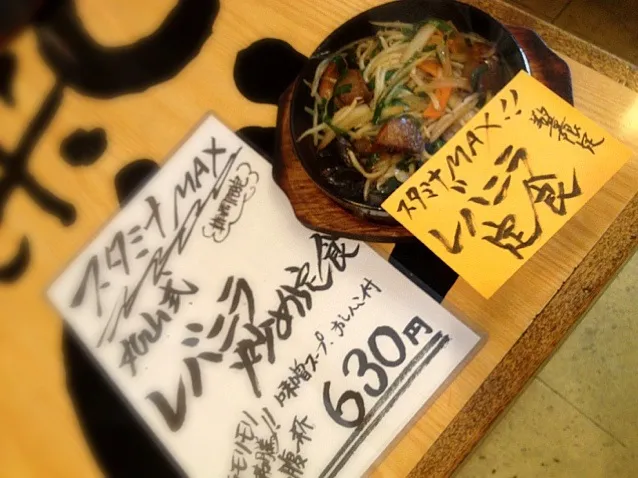 スタミナMAX!!
数量限定
レバニラ
定食
スタミナMAX
丸山式
レバニラ
炒め定食
味噌スープ、おしんこ付
630円
モリモリ
腹一杯